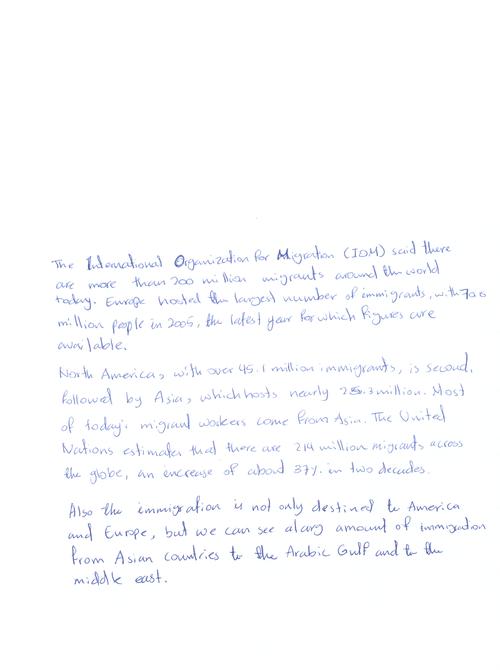 The International Organization for Migration (IOM) said there
are more than 200 million migrants around the world
today. Europe hosted the largest number of immigrants, with 70.6
million people in 2005, the latest year for which figures are
available.
North America, with over 45.1 million immigrants, is second,
followed by Asia, which hosts nearly 25.3 million. Most
of today's migrant workers come from Asia. The United
Nations estimates that there are 214 million migrants across
the globe, an increase of about 37% in two decades.
Also the immigration is not only destined to America
and Europe, but we can see alarg amount of immigration
from Asian countries to the Arabic Gulf and to the
middle east.